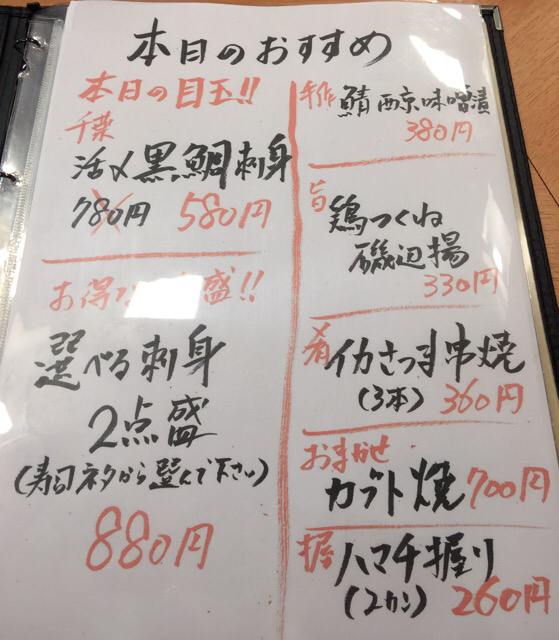 本日のおすすめ
本日の目玉!!
千葉
活〆黒鯛刺身
780円 580円
お得な 盛!!
選べる刺身
2点盛
(寿司ネタから選んで下さい)
880円
手作 鯖西京味噌漬
380円
旨 鶏つくね
磯辺揚
330円
肴 イカさつま串焼
(3本) 360円
おまかせ
カブト焼 700円
握 ハマチ握り
(2カン) 260円